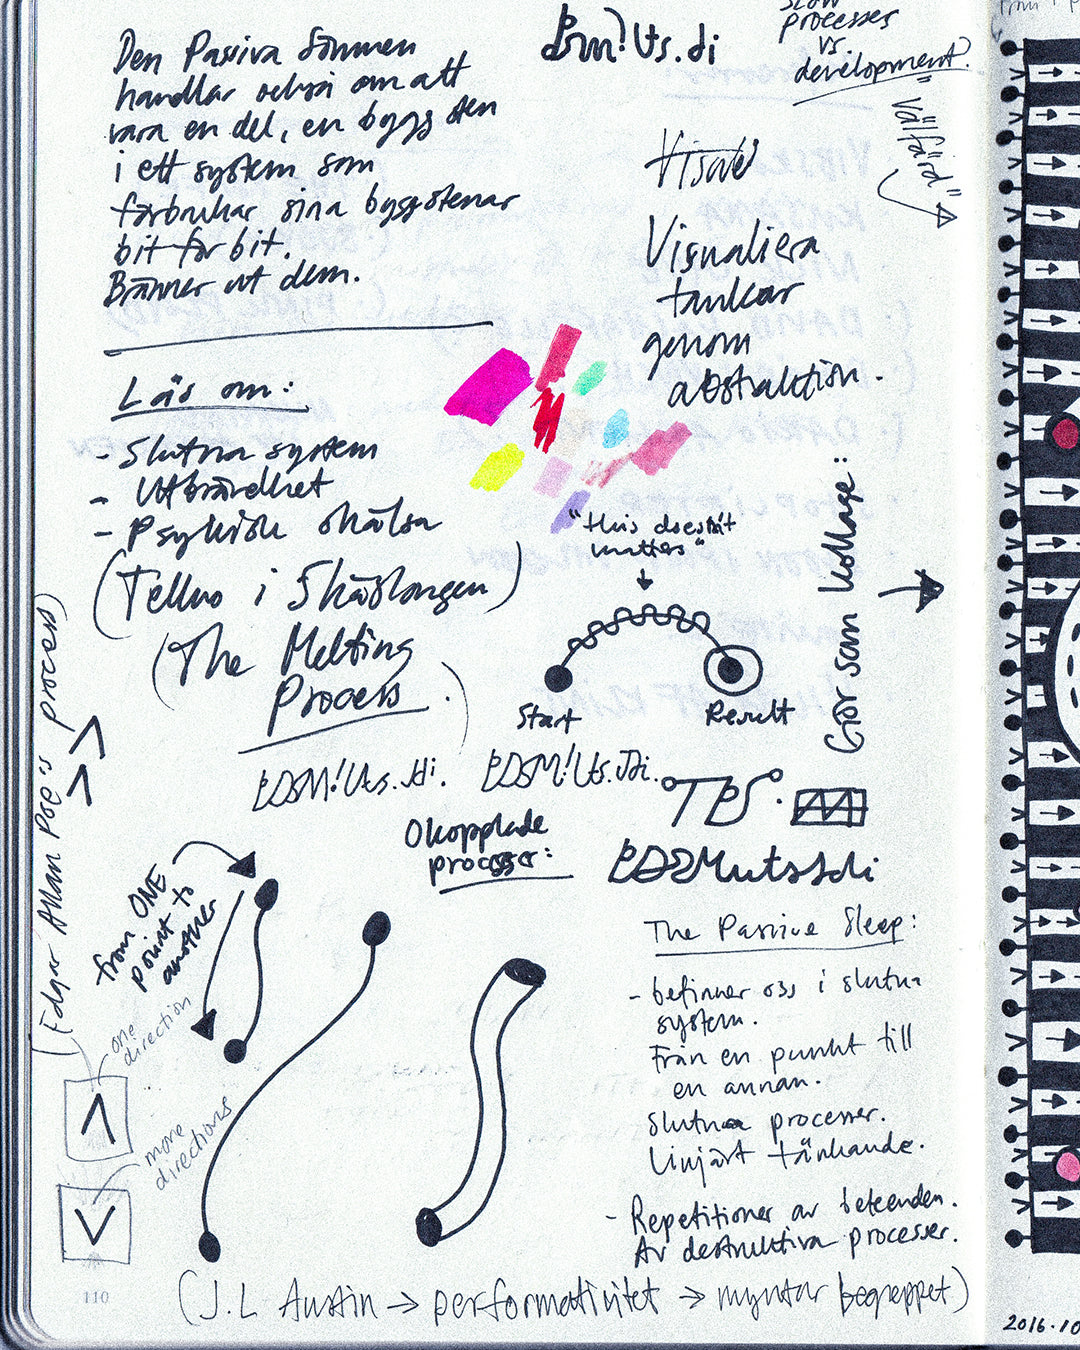 Den Passiva Sömmen
handlar också om att
vara en del, en byggsten
i ett system som
förbrukar sina byggstenar
bit för bit.
Bränner ut dem.
Läs om:
- Slutna system
- Utbrändhet
- Psykisk ohälsa
(Tellus i
(The Melting
Process.)
(Edgar Allan Poe's process)
slow
processes
vs.
development?
"välfärd"
Visue
Visualisera
tankar
genom
abstraktion.
"this doesn't
matters"
Start
Result
Gör som kollage:
Okopplade
processer:
from ONE
point to
another
one
direction
more
directions
The Passive Sleep:
- befinner oss i slutna
system.
Från en punkt till
en annan.
Slutna processer.
Linjärt tänkande.
- Repetitioner av beteenden.
Av destruktiva processer.
(J.L Austin → performativitet → myntar begreppet)
110
2016.10